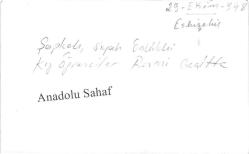 29-Ekim-948
Eskişehir
Şapkalı, siyah Önlüklü
Kız Öğrenciler Resmi Geçitte
Anadolu Sahaf